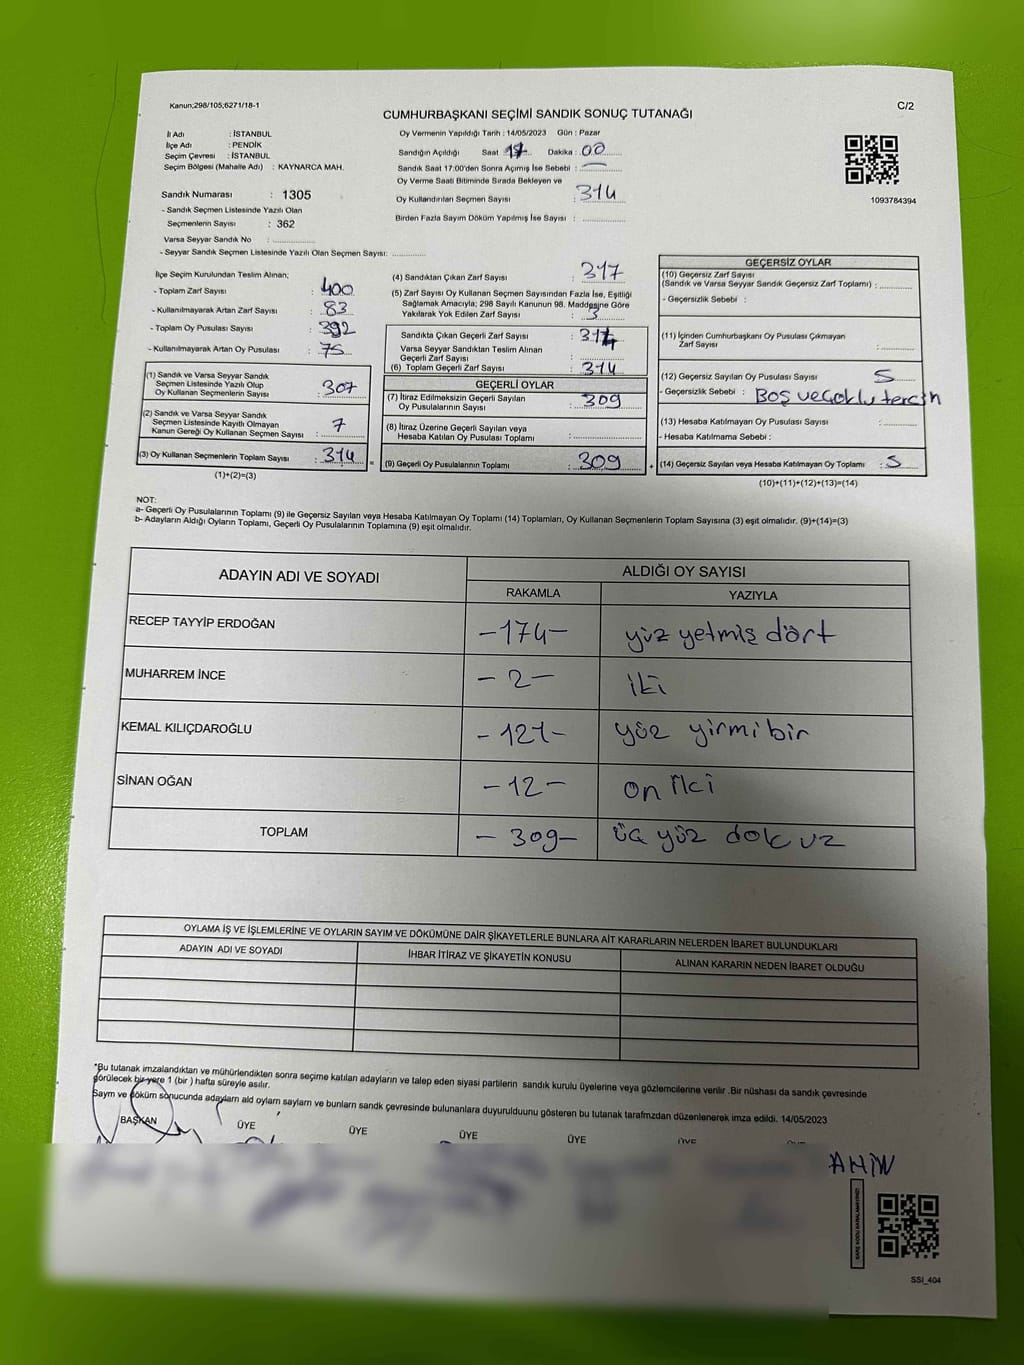 Kanun;298/105;6271/18-1
C/2
CUMHURBAŞKANI SEÇİMİ SANDIK SONUÇ TUTANAĞI
İl Adı : İSTANBUL
İlçe Adı : PENDİK
Seçim Çevresi : İSTANBUL
Seçim Bölgesi (Mahalle Adı) : KAYNARCA MAH.
Sandık Numarası : 1305
- Sandık Seçmen Listesinde Yazılı Olan
Seçmenlerin Sayısı : 362
Varsa Seyyar Sandık No :
- Seyyar Sandık Seçmen Listesinde Yazılı Olan Seçmen Sayısı:
Oy Vermenin Yapıldığı Tarih : 14/05/2023 Gün : Pazar
Sandığın Açıldığı Saat 17 Dakika : 00
Sandık Saat 17:00'den Sonra Açımış İse Sebebi :
Oy Verme Saati Bitiminde Sırada Bekleyen ve
Oy Kullandırılan Seçmen Sayısı : 314
Birden Fazla Sayım Döküm Yapılmış İse Sayısı :
1093784394
İlçe Seçim Kurulundan Teslim Alınan;
- Toplam Zarf Sayısı : 400
- Kullanılmayarak Artan Zarf Sayısı : 83
- Toplam Oy Pusulası Sayısı : 392
- Kullanılmayarak Artan Oy Pusulası : 75
(1) Sandık ve Varsa Seyyar Sandık
Seçmen Listesinde Yazılı Olup
Oy Kullanan Seçmenlerin Sayısı : 307
(2) Sandık ve Varsa Seyyar Sandık
Seçmen Listesinde Kayıtlı Olmayan
Kanun Gereği Oy Kullanan Seçmen Sayısı : 7
(3) Oy Kullanan Seçmenlerin Toplam Sayısı : 314
(1)+(2)=(3)
(4) Sandıktan Çıkan Zarf Sayısı : 317
(5) Zarf Sayısı Oy Kullanan Seçmen Sayısından Fazla İse, Eşitliği
Sağlamak Amacıyla; 298 Sayılı Kanunun 98. Maddesine Göre
Yakılarak Yok Edilen Zarf Sayısı : 3
Sandıkta Çıkan Geçerli Zarf Sayısı : 314
Varsa Seyyar Sandıktan Teslim Alınan
Geçerli Zarf Sayısı :
(6) Toplam Geçerli Zarf Sayısı : 314
GEÇERLİ OYLAR
(7) İtiraz Edilmeksizin Geçerli Sayılan
Oy Pusulalarının Sayısı : 309
(8) İtiraz Üzerine Geçerli Sayılan veya
Hesaba Katılan Oy Pusulası Toplamı :
= (9) Geçerli Oy Pusulalarının Toplamı : 309 +
GEÇERSİZ OYLAR
(10) Geçersiz Zarf Sayısı
(Sandık ve Varsa Seyyar Sandık Geçersiz Zarf Toplamı) :
- Geçersizlik Sebebi :
(11) İçinden Cumhurbaşkanı Oy Pusulası Çıkmayan
Zarf Sayısı :
(12) Geçersiz Sayılan Oy Pusulası Sayısı : 5
- Geçersizlik Sebebi : Boş ve Çoklu tercih
(13) Hesaba Katılmayan Oy Pusulası Sayısı :
- Hesaba Katılmama Sebebi :
(14) Geçersiz Sayılan veya Hesaba Katılmayan Oy Toplamı : 5
(10)+(11)+(12)+(13)=(14)
NOT:
a- Geçerli Oy Pusulalarının Toplamı (9) ile Geçersiz Sayılan veya Hesaba Katılmayan Oy Toplamı (14) Toplamları, Oy Kullanan Seçmenlerin Toplam Sayısına (3) eşit olmalıdır. (9)+(14)=(3)
b- Adayların Aldığı Oyların Toplamı, Geçerli Oy Pusulalarının Toplamına (9) eşit olmalıdır.
ADAYIN ADI VE SOYADI ALDIĞI OY SAYISI
RAKAMLA YAZIYLA
RECEP TAYYİP ERDOĞAN -174- yüz yetmiş dört
MUHARREM İNCE -2- iki
KEMAL KILIÇDAROĞLU -121- yüz yirmi bir
SİNAN OĞAN -12- on iki
TOPLAM -309- üç yüz dokuz
OYLAMA İŞ VE İŞLEMLERİNE VE OYLARIN SAYIM VE DÖKÜMÜNE DAİR ŞİKAYETLERLE BUNLARA AİT KARARLARIN NELERDEN İBARET BULUNDUKLARI
ADAYIN ADI VE SOYADI İHBAR İTİRAZ VE ŞİKAYETİN KONUSU ALINAN KARARIN NEDEN İBARET OLDUĞU
*Bu tutanak imzalandıktan ve mühürlendikten sonra seçime katılan adayların ve talep eden siyasi partilerin sandık kurulu üyelerine veya gözlemcilerine verilir .Bir nüshası da sandık çevresinde
görülecek bir yere 1 (bir ) hafta süreyle asılır.
Sayım ve döküm sonucunda adayların ald oyların sayların ve bunların sandk çevresinde bulunanlara duyurulduunu gösteren bu tutanak tarafmzdan düzenlenerek imza edildi. 14/05/2023
BAŞKAN ÜYE ÜYE ÜYE ÜYE ÜYE
SSİ_404